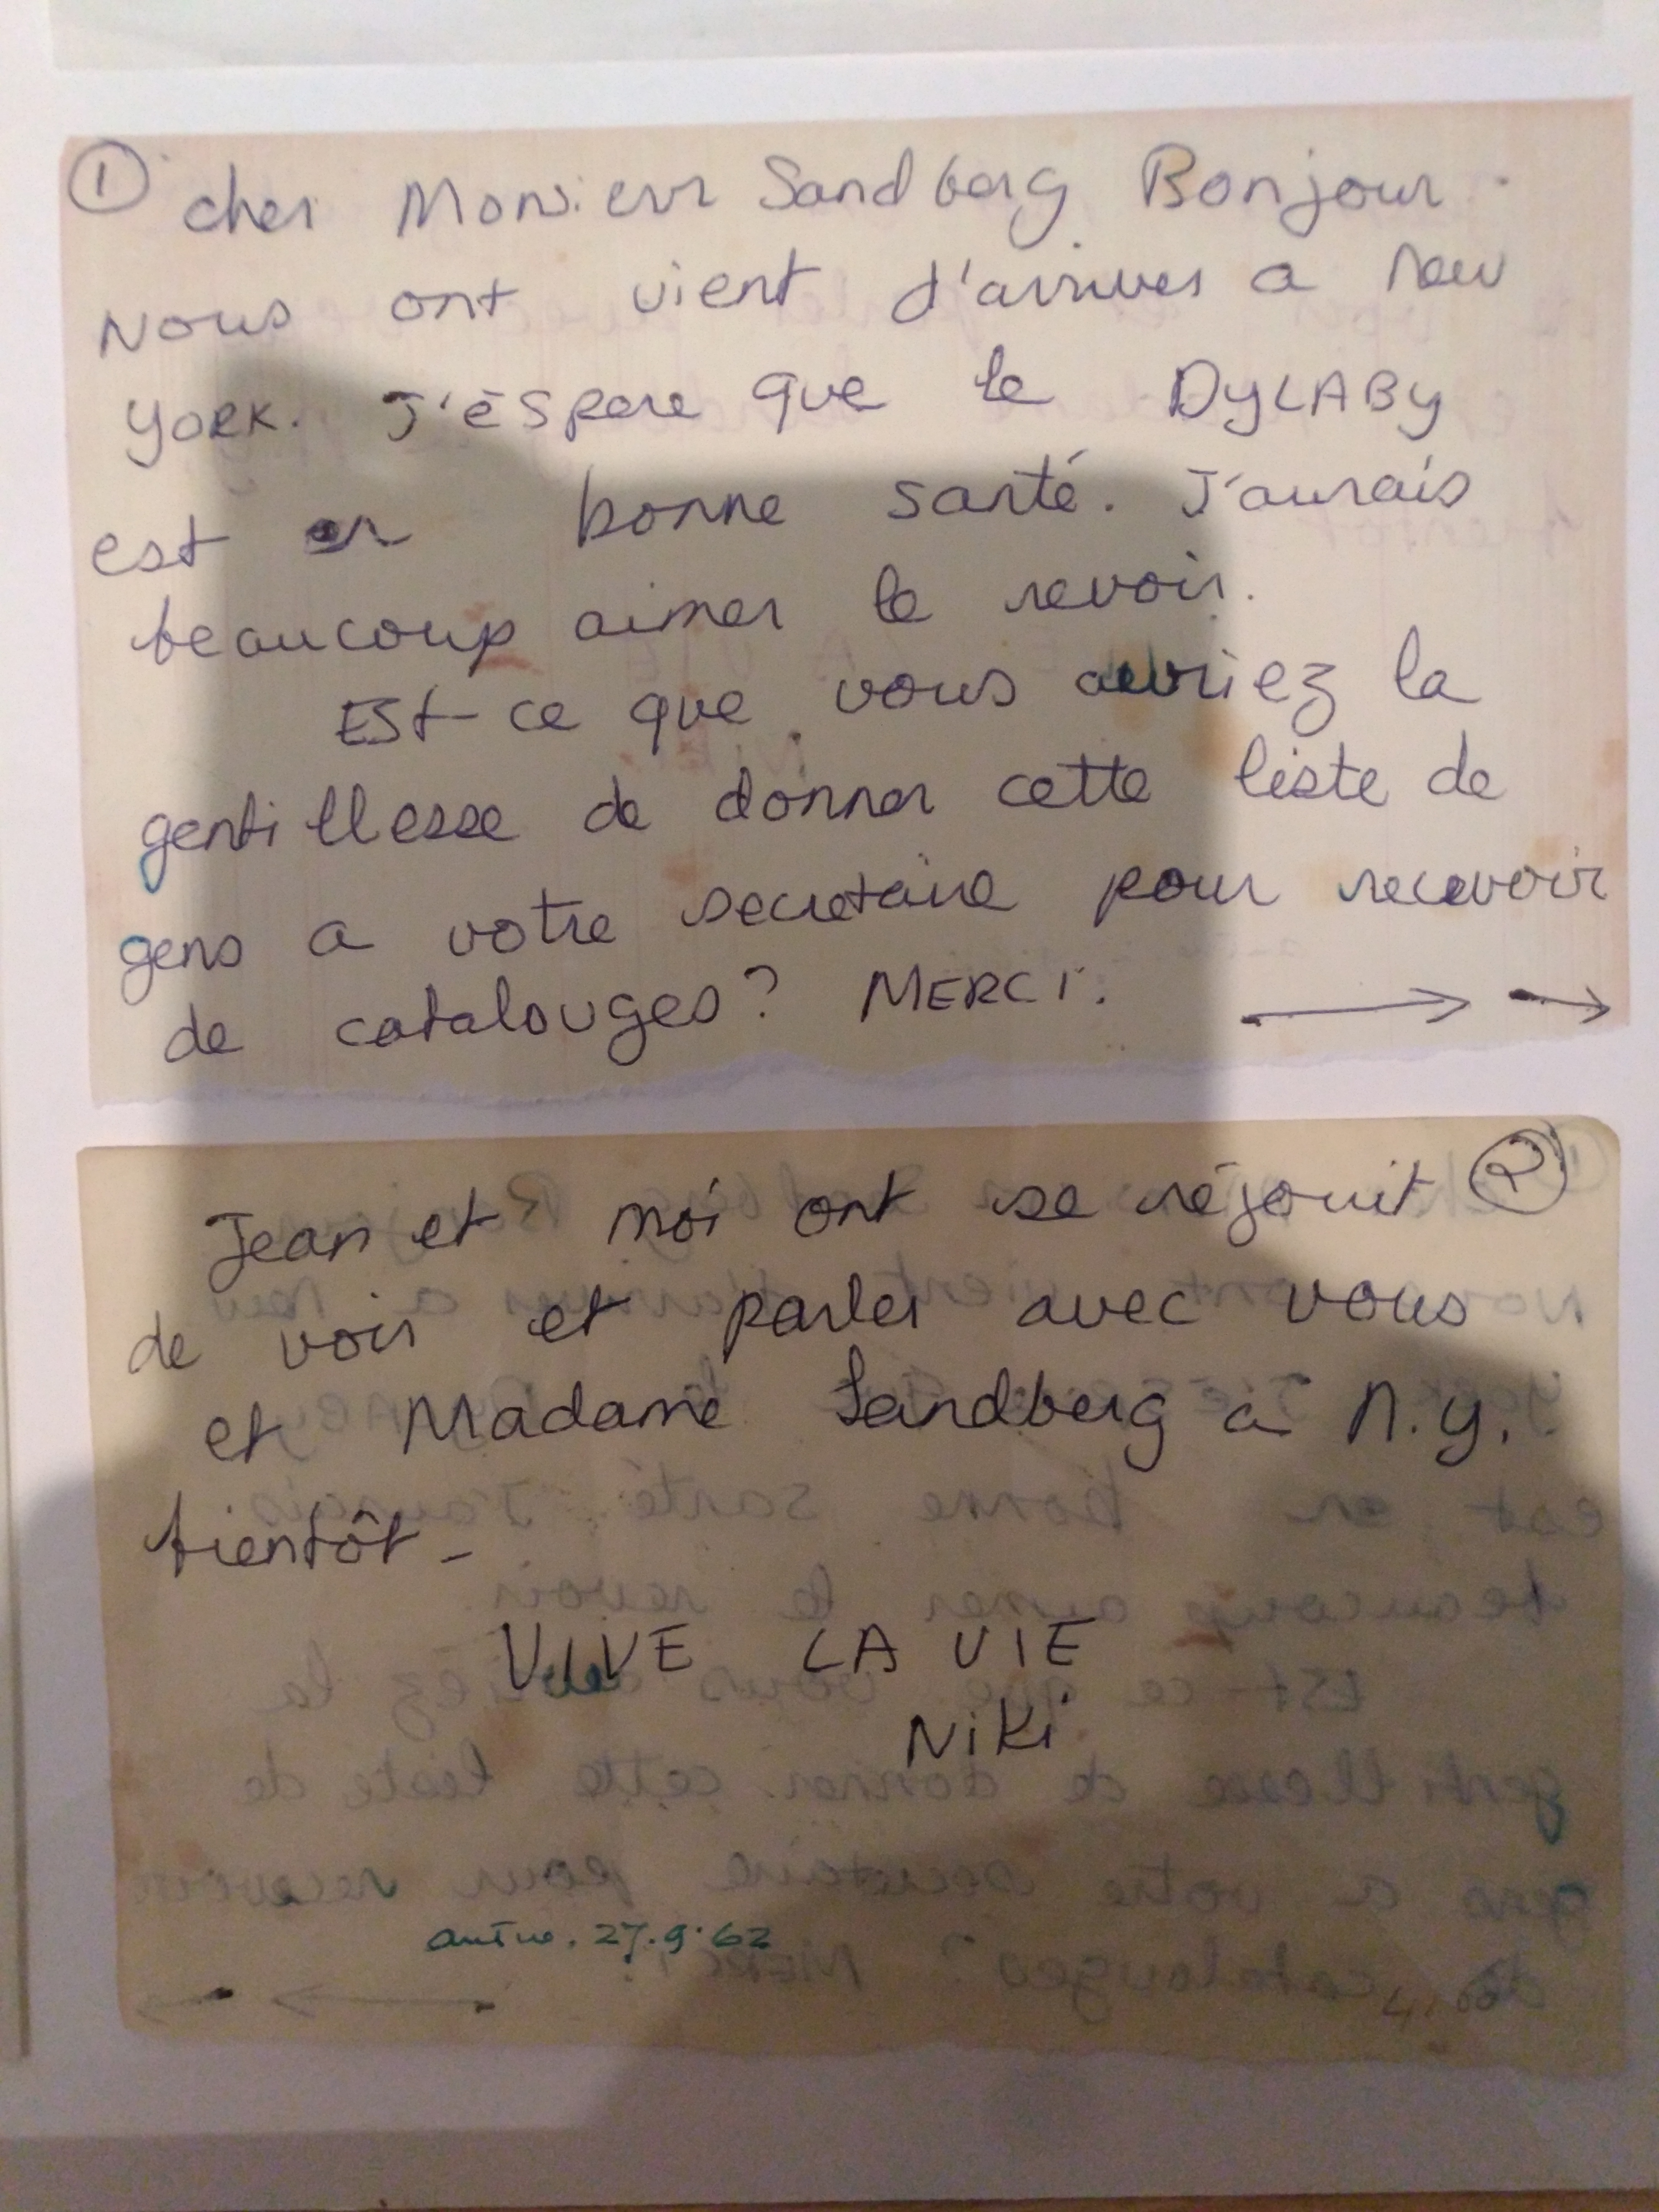 ①
cher Monsieur Sandberg Bonjour.
Nous ont vient d'arriver a New
York. J'éspere que le DyLABy
est en bonne santé. J'aurais
beaucoup aimer le revoir.
Est-ce que vous auriez la
gentillesse de donner cette liste de
gens a votre secretaire pour recevoir
de catalouges? MERCI.
②
Jean et moi ont se réjouit
de voir et parler avec vous
et Madame Sandberg a N.y.
bientôt-
VIVE LA VIE
NiKi
27.9.62